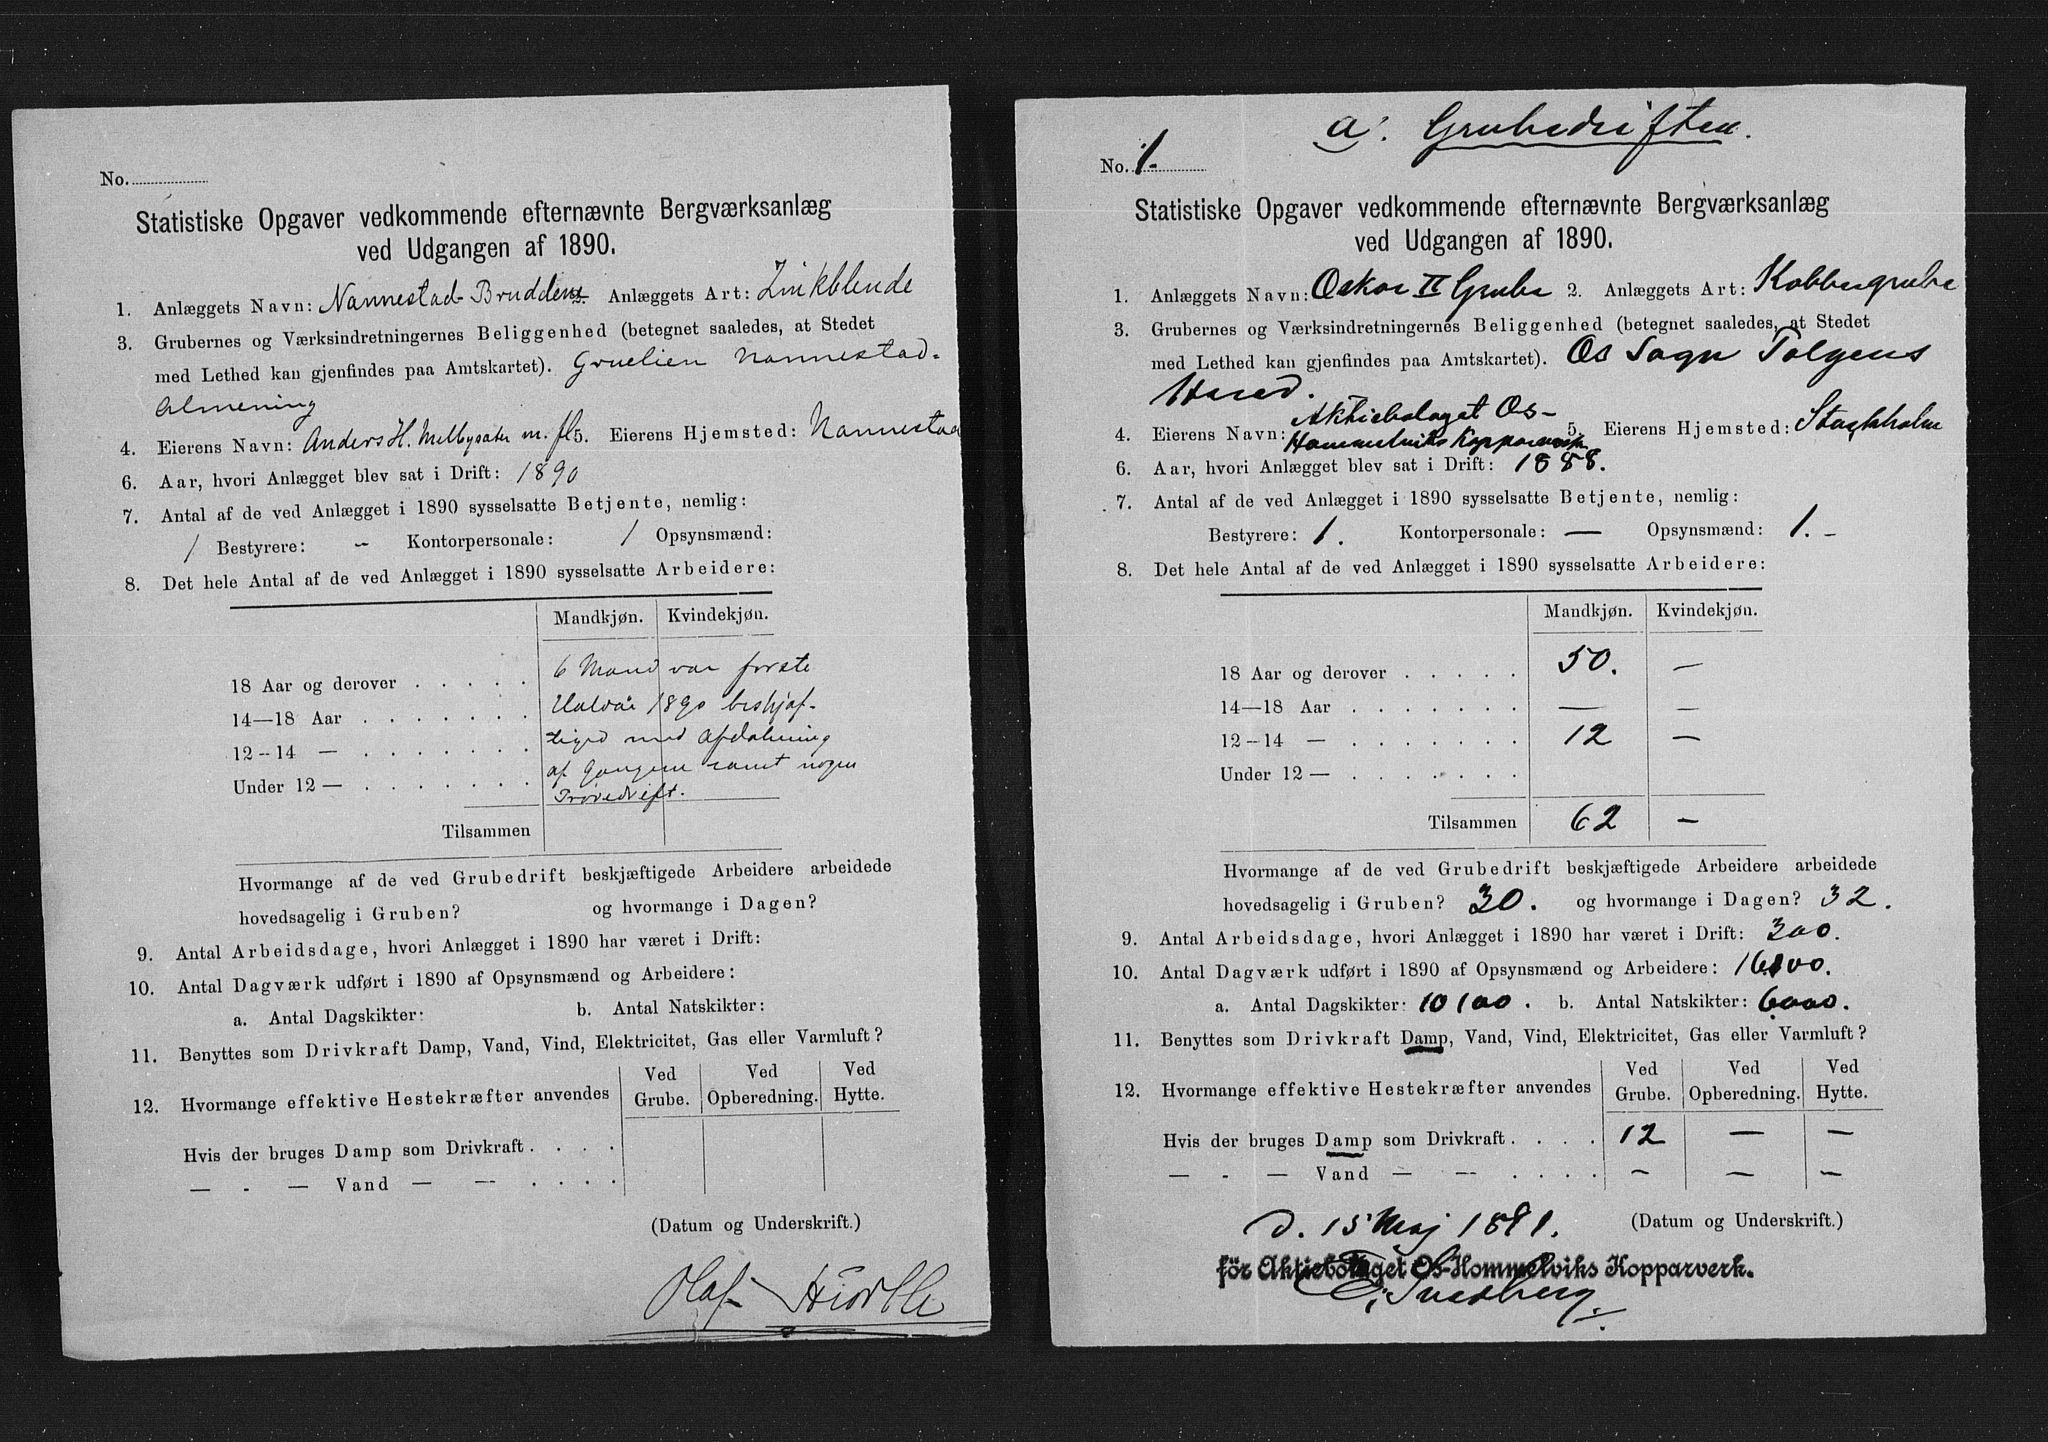 No.
Statistiske Opgaver vedkommende efternævnte Bergværksanlæg
ved Udgangen af 1890.
1. Anlæggets Navn: Nannestad Bruddens Anlæggets Art: Zinkblende
3. Grubernes og Værksindretningernes Beliggenhed (betegnet saaledes, at Stedet
med Lethed kan gjenfindes paa Amtskartet). Gruelien Nannestad-
Almening
4. Eierens Navn: Anders H. Melbysæter m. fl. 5. Eierens Hjemsted: Nannestad
6. Aar, hvori Anlægget blev sat i Drift: 1890
7. Antal af de ved Anlægget i 1890 sysselsatte Betjente, nemlig:
1 Bestyrere: – Kontorpersonale: 1 Opsynsmænd:
8. Det hele Antal af de ved Anlægget i 1890 sysselsatte Arbeidere:
Mandkjøn. Kvindekjøn.
6 Mand var første
18 Aar og derover . . . . .
Halvår 1890 beskjæf-
14—18 Aar . . . . . . .
tiged med Afdækning
12-14 — . . . . . . .
af Gangene samt nogen
Under 12 — . . . . . . .
Prøvedrift.
Tilsammen
Hvormange af de ved Grubedrift beskjæftigede Arbeidere arbeidede
hovedsagelig i Gruben? og hvormange i Dagen?
9. Antal Arbeidsdage, hvori Anlægget i 1890 har været i Drift:
10. Antal Dagværk udført i 1890 af Opsynsmænd og Arbeidere:
a. Antal Dagskikter: b. Antal Natskikter:
11. Benyttes som Drivkraft Damp, Vand, Vind, Elektricitet, Gas eller Varmluft?
Ved Ved Ved
12. Hvormange effektive Hestekræfter anvendes Grube. Opberedning. Hytte.
Hvis der bruges Damp som Drivkraft . . . .
— - — Vand — — . . . .
(Datum og Underskrift.)
Olaf
a. Grubedriften.
No. 1.
Statistiske Opgaver vedkommende efternævnte Bergværksanlæg
ved Udgangen af 1890.
1. Anlæggets Navn: Oskar II Grube 2. Anlæggets Art: Kobbergrube
3. Grubernes og Værksindretningernes Beliggenhed (betegnet saaledes, at Stedet
med Lethed kan gjenfindes paa Amtskartet). Os Sogn Tolgens
Hered.
Aktiebolaget Os-
4. Eierens Navn: Hommelviks Kopparverk 5. Eierens Hjemsted: Stockholm
6. Aar, hvori Anlægget blev sat i Drift: 1888.
7. Antal af de ved Anlægget i 1890 sysselsatte Betjente, nemlig:
Bestyrere: 1. Kontorpersonale: — Opsynsmænd: 1. -
8. Det hele Antal af de ved Anlægget i 1890 sysselsatte Arbeidere:
Mandkjøn. Kvindekjøn.
18 Aar og derover . . . . . 50. —
14—18 Aar . . . . . . . — —
12-14 — . . . . . . . 12 —
Under 12 — . . . . . . .
Tilsammen 62 —
Hvormange af de ved Grubedrift beskjæftigede Arbeidere arbeidede
hovedsagelig i Gruben? 30. og hvormange i Dagen? 32.
9. Antal Arbeidsdage, hvori Anlægget i 1890 har været i Drift: 300.
10. Antal Dagværk udført i 1890 af Opsynsmænd og Arbeidere: 16100.
a. Antal Dagskikter: 10100. b. Antal Natskikter: 6000.
11. Benyttes som Drivkraft Damp, Vand, Vind, Elektricitet, Gas eller Varmluft?
Ved Ved Ved
12. Hvormange effektive Hestekræfter anvendes Grube. Opberedning. Hytte.
Hvis der bruges Damp som Drivkraft . . . . 12 — —
— - — Vand — — . . . . — — —
d. 15 Maj 1891. (Datum og Underskrift.)
för Aktiebolaget Os-Hommelviks Kopparverk.
Svedberg.